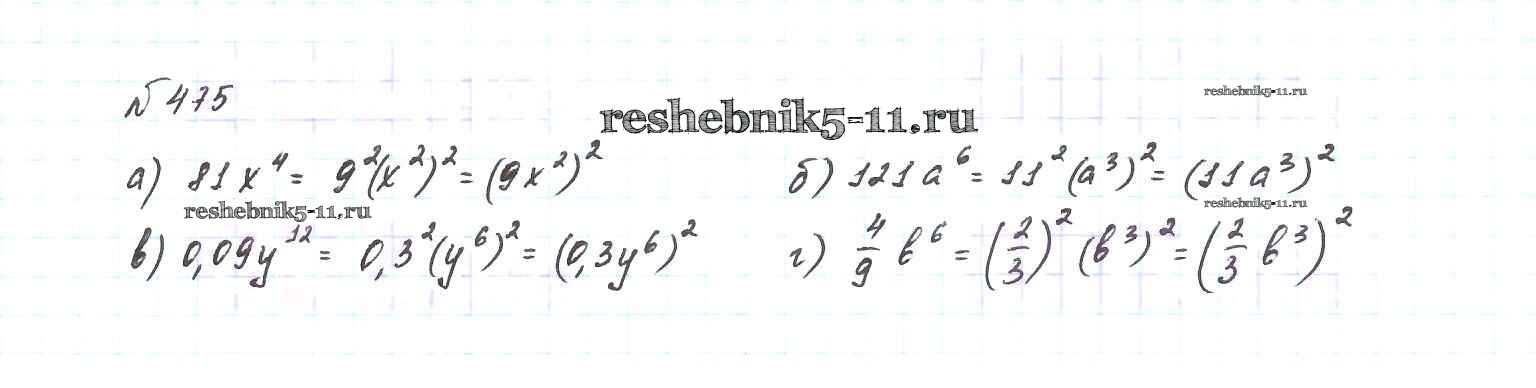 № 475
reshebnik5-11.ru
reshebnik5-11.ru
а) 81x⁴ = 9²(x²)² = (9x²)²
б) 121a⁶ = 11²(a³)² = (11a³)²
reshebnik5-11.ru
reshebnik5-11.ru
в) 0,09y¹² = 0,3²(y⁶)² = (0,3y⁶)²
г) 4/9 b⁶ = (2/3)² (b³)² = (2/3 b³)²